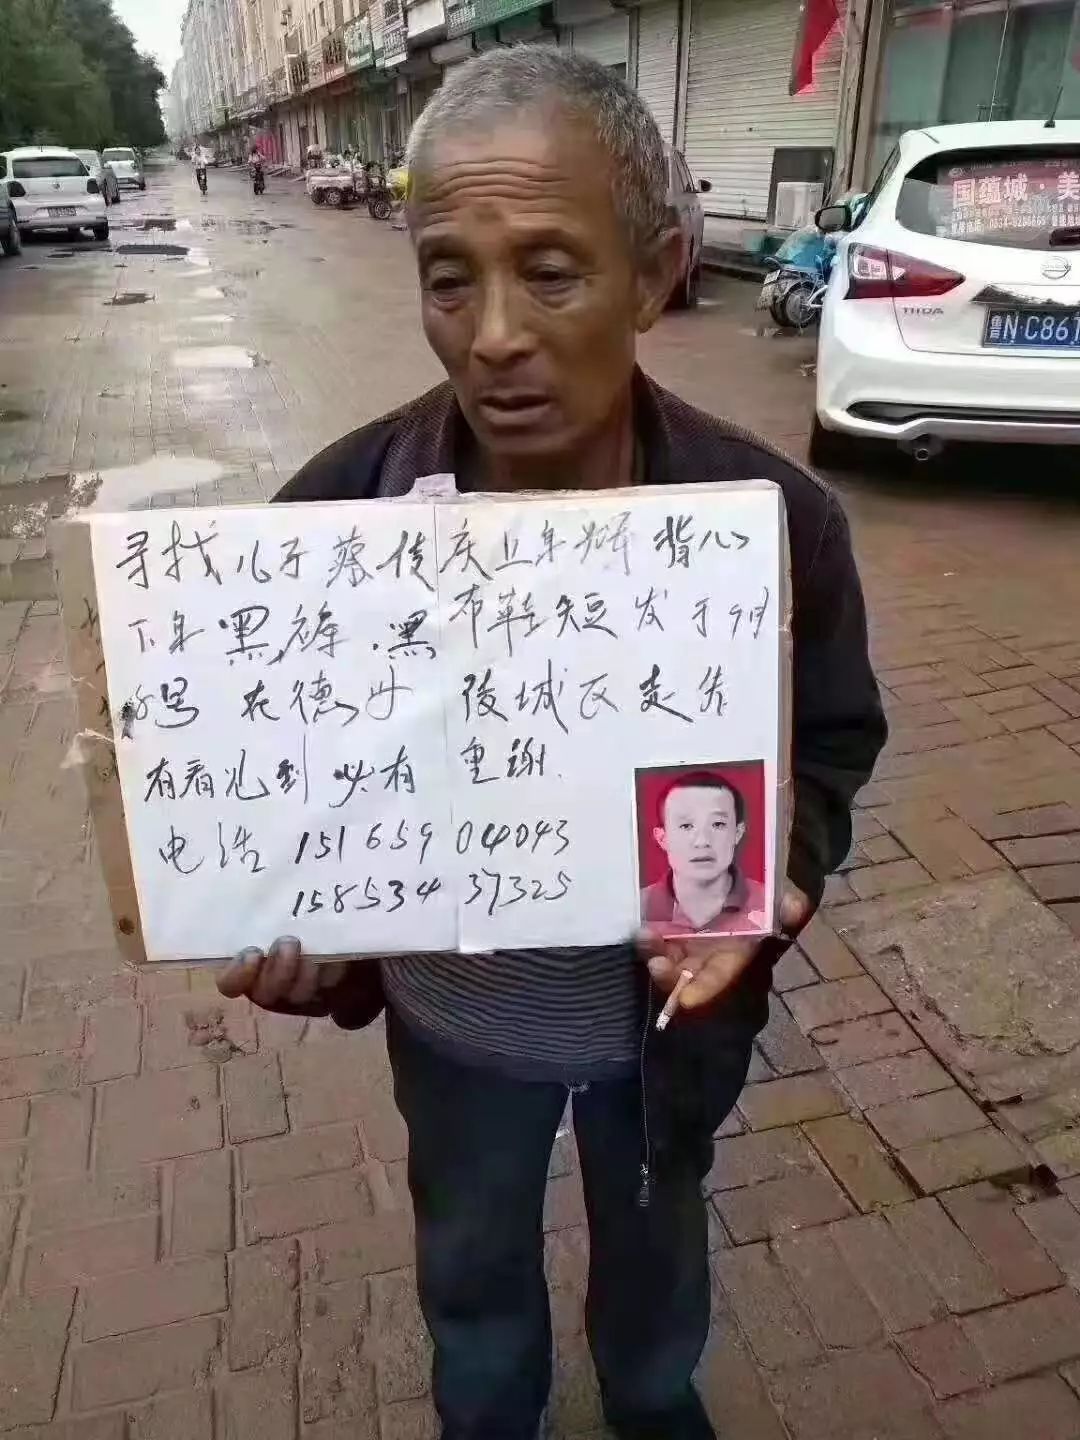 寻找儿子蔡传庆上身 背心
下身黑裤.黑布鞋短发于9月
号在德州陵城区走失
有看见到必有重谢.
电话 15165904043
15853437325
国蕴城·美
TIIDA
鲁N·C861